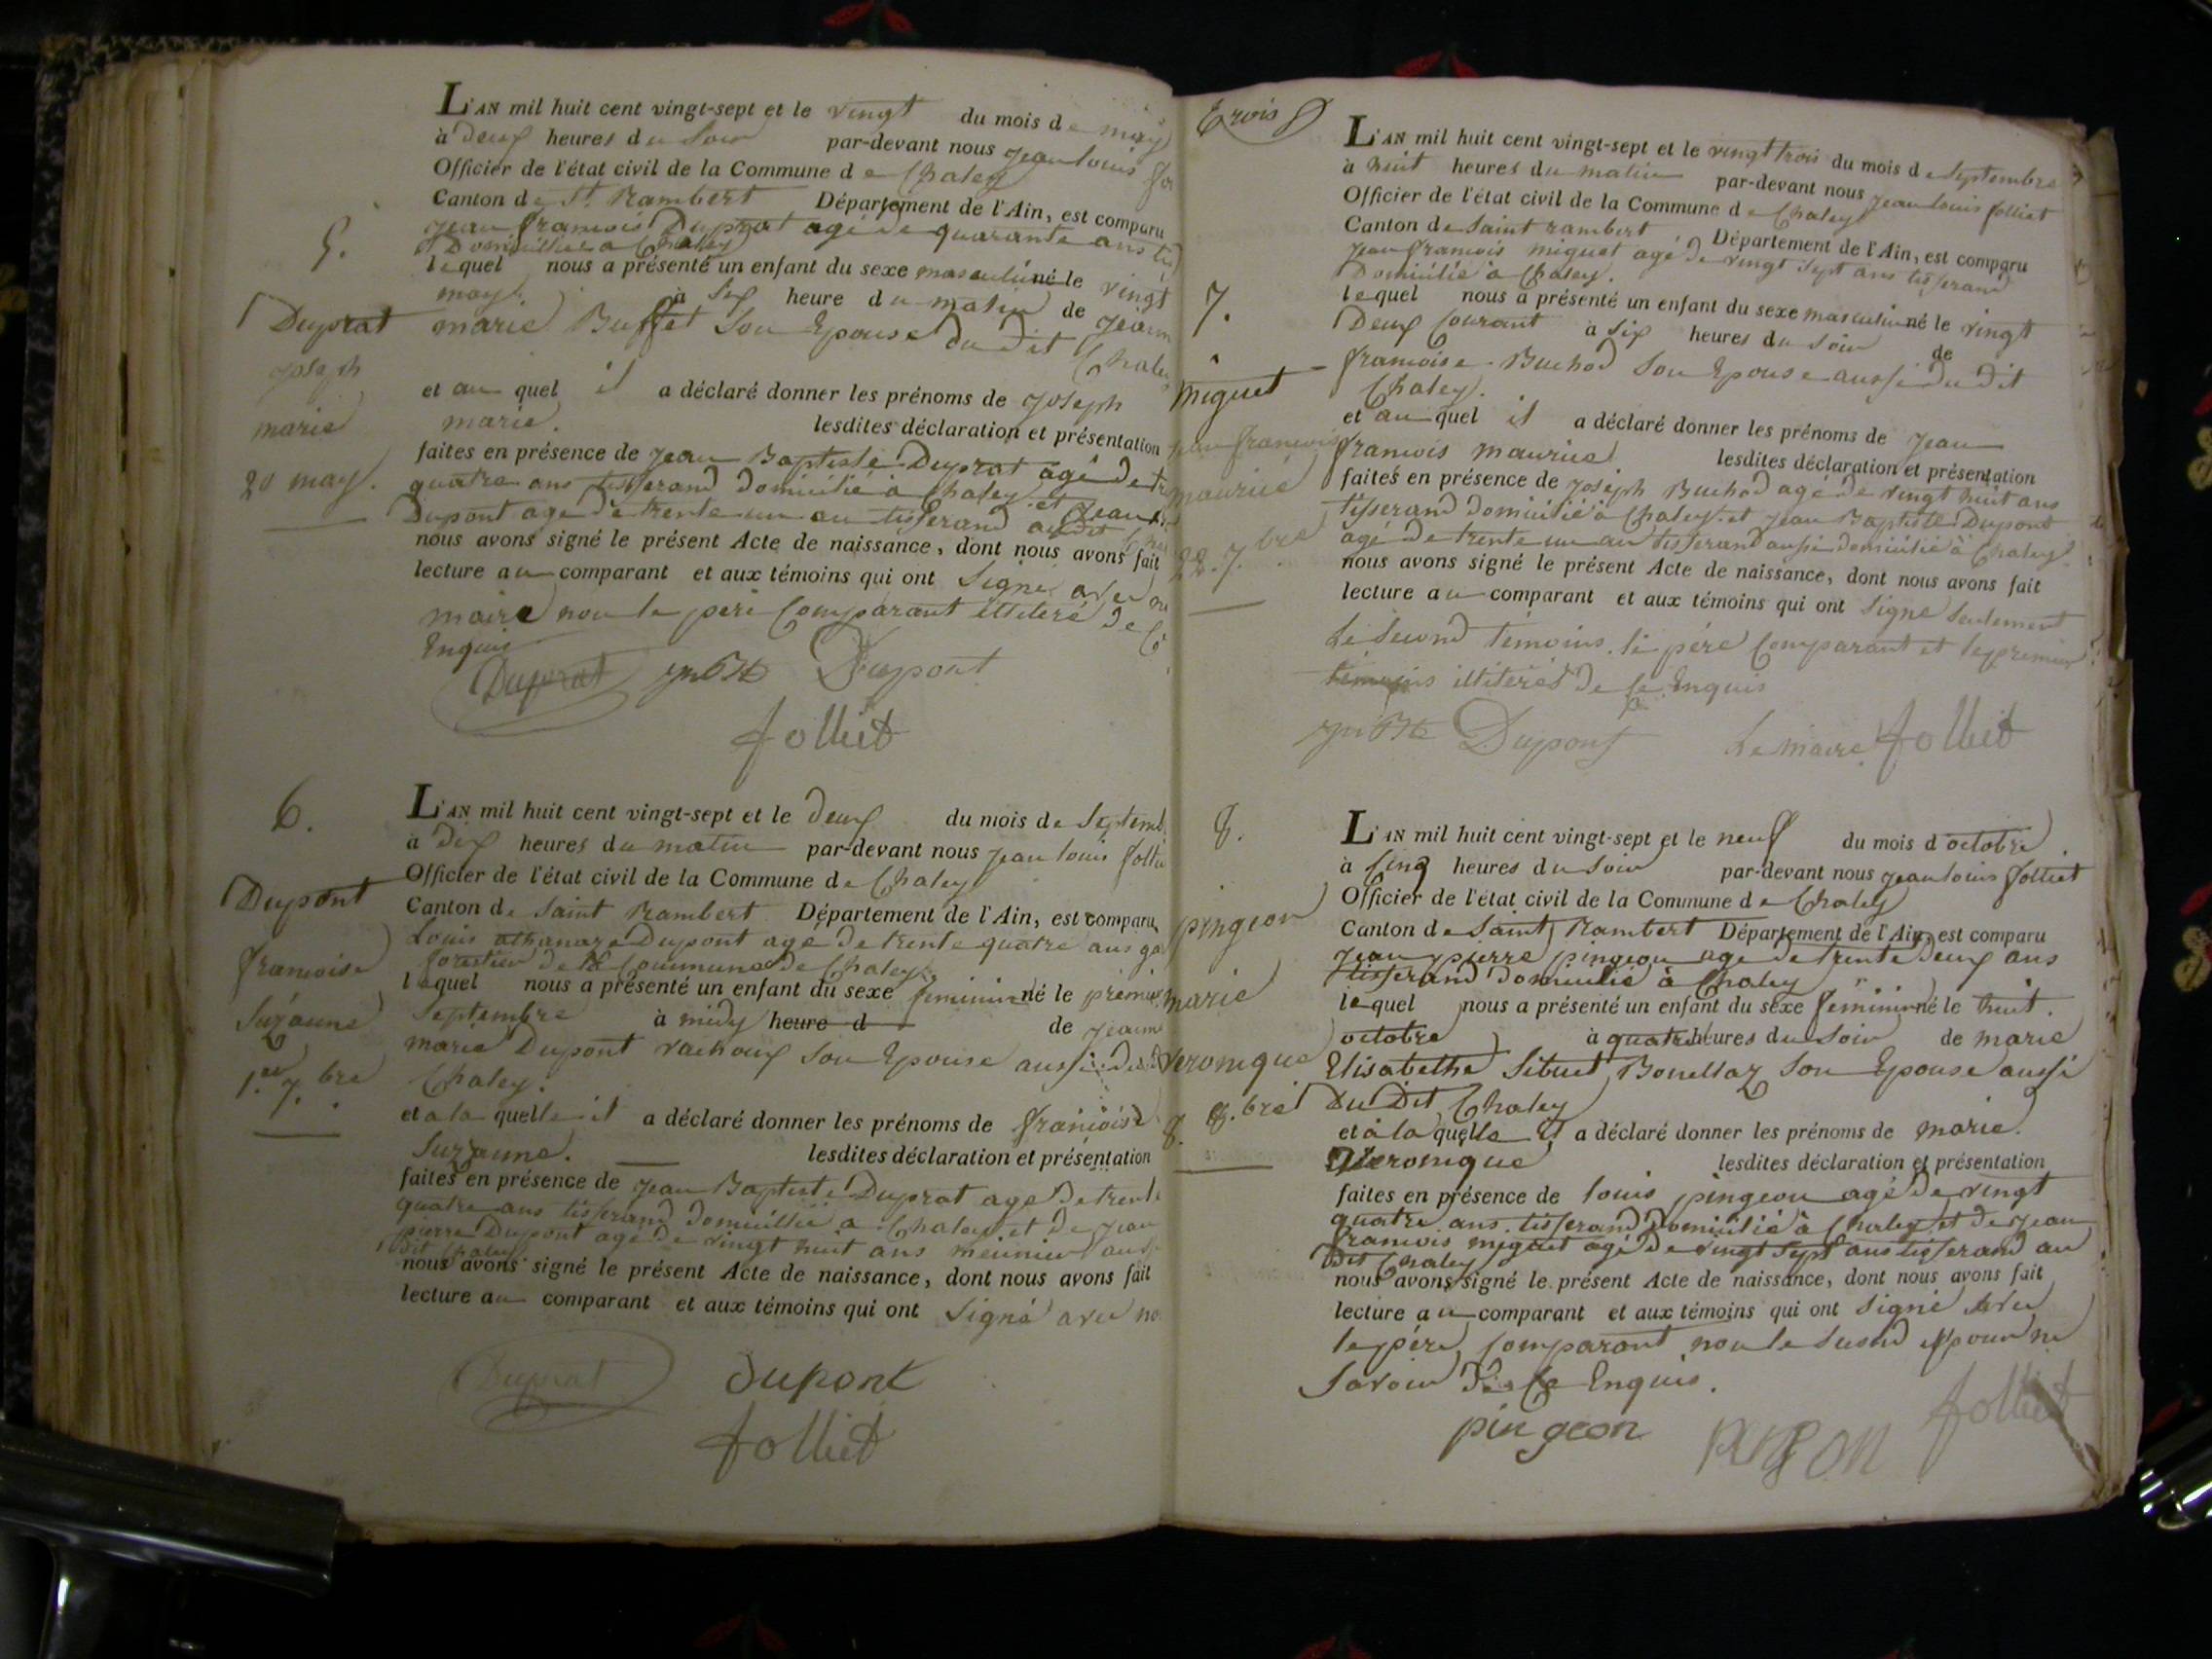 5.
Duprat
joseph
marie
20 may.
L'AN mil huit cent vingt-sept et le vingt du mois de may
à deux heures du soir par-devant nous jean louis
Officier de l'état civil de la Commune de Chaley
Canton de St. Rambert Département de l'Ain, est comparu
jean francois Duprat agé de quarante ans
Domicilié a Chaley
lequel nous a présenté un enfant du sexe masculin né le vingt
may. à six heure du matin de jeanne
marie Buffet son Epouse du dit
Chaley
et au quel il a déclaré donner les prénoms de joseph
marie. lesdites déclaration et présentation
faites en présence de jean Baptiste Duprat agé de
quatre ans tisserand domicilié à Chaley et jean
Dupont agé de trente un an tisserand au dit
nous avons signé le présent Acte de naissance, dont nous avons fait
lecture au comparant et aux témoins qui ont signé avec
maire non le père comparant illiteré de ce
Enquis
Duprat jn Bte Dupont
folliet
6.
Dupont
francoise
Suzanne
1.er 7.bre
L'AN mil huit cent vingt-sept et le deux du mois de Septemb
à dix heures du matin par-devant nous jean louis folli
Officier de l'état civil de la Commune de Chaley
Canton de Saint Rambert Département de l'Ain, est comparu
Louis athanaze Dupont agé de trente quatre ans ga
forestier de la Commune de Chaley
lequel nous a présenté un enfant du sexe feminin né le premier
Septembre à midy heure d de jeanne
marie Dupont vachoux son Epouse aussi du d
Chaley.
et a la quelle il a déclaré donner les prénoms de francoise
Suzanne. lesdites déclaration et présentation
faites en présence de jean Baptiste Duprat agé de trente
quatre ans tisserand domicillié a Chaley et de jean
pierre Dupont agé de vingt huit ans meunier au
dit Chaley
nous avons signé le présent Acte de naissance, dont nous avons fait
lecture au comparant et aux témoins qui ont signé avec no
Duprat dupont
folliet
trois
7.
miguet
jean francois
maurice
22. 7.bre
L'AN mil huit cent vingt-sept et le vingt trois du mois de septembre
à huit heures du matin par-devant nous jean louis folliet
Officier de l'état civil de la Commune de Chaley
Canton de Saint rambert Département de l'Ain, est comparu
jean francois miguet agé de vingt sept ans tisserand
Domicilié à Chaley.
lequel nous a présenté un enfant du sexe masculin né le vingt
Deux Courant à six heures du soir de
francoise Buchod son Epouse aussi du dit
Chaley.
et au quel il a déclaré donner les prénoms de jean
francois maurice lesdites déclaration et présentation
faites en présence de joseph Buchod agé de vingt huit ans
tisserand domicilié à Chaley et jean Baptiste Dupont
agé de trente un an tisserand aussi domicilié à Chaley.
nous avons signé le présent Acte de naissance, dont nous avons fait
lecture au comparant et aux témoins qui ont signé seulement
le second témoins. le père comparant et le premier
témoins illiterés de ce Enquis
jn Bte Dupont Le maire folliet
8.
pingeon
marie
veronique
8. 8.bre
L'AN mil huit cent vingt-sept et le neuf du mois d'octobre
à cinq heures du soir par-devant nous jean louis folliet
Officier de l'état civil de la Commune de Chaley
Canton de Saint Rambert Département de l'Ain, est comparu
jean pierre pingeon agé de trente deux ans
tisserand domicilié à Chaley
lequel nous a présenté un enfant du sexe féminin né le huit.
octobre à quatre heures du soir de marie
Elisabethe Sibuet Bonellaz son Epouse aussi
du dit Chaley
et à la quelle il a déclaré donner les prénoms de marie.
veronique lesdites déclaration et présentation
faites en présence de louis pingeon agé de vingt
quatre ans tisserand Domicilié à Chaley et de jean
francois miguet agé de vingt sept ans tisserand au
dit Chaley
nous avons signé le présent Acte de naissance, dont nous avons fait
lecture au comparant et aux témoins qui ont signé avec
le père comparant non le second pour ne
savoir de ce Enquis.
pingeon pingeon folliet